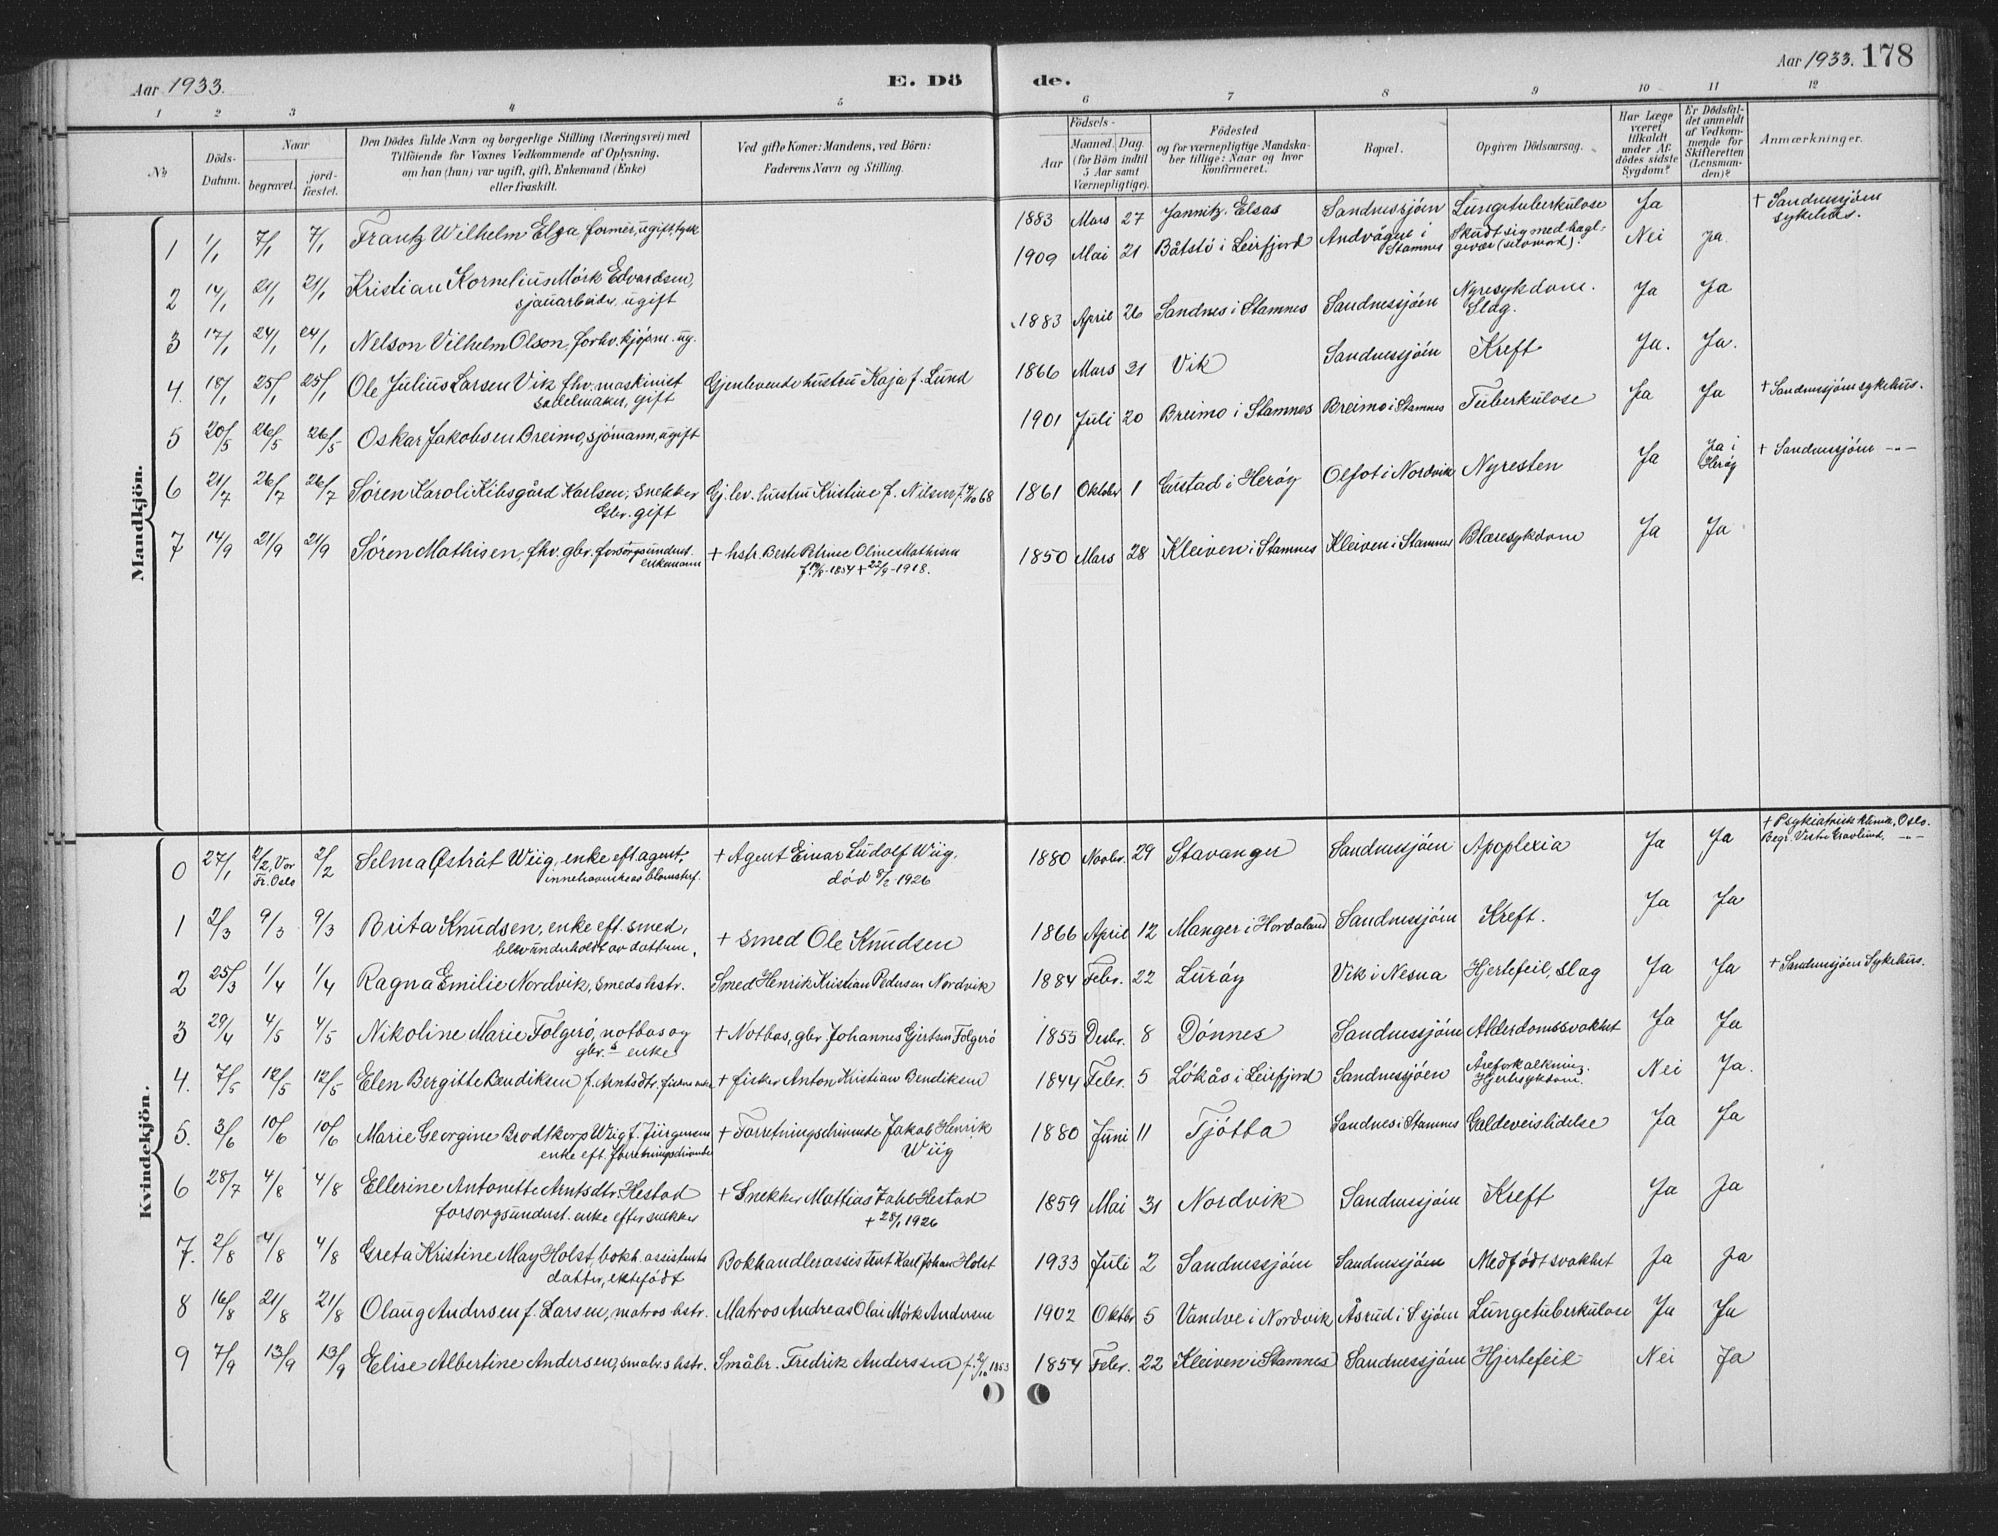 Aar 1933.
E. Dö
de.
Aar 1933. 178
1 2 3 4 5 6 7 8 9 10 11 12
№
Döds-Datum.
Naar
begravet.
jord-fæstet.
Den Dödes fulde Navn og borgerlige Stilling (Næringsvei) med
Tilföiende for Voxnes Vedkommende af Oplysning,
om han (hun) var ugift, gift, Enkemand (Enke)
eller fraskilt.
Ved gifte Koner: Mandens, ved Börn:
Faderens Navn og Stilling.
Födsels-
Aar
Maaned. Dag.
(for Börn indtil
5 Aar samt
Værnepligtige).
Födested
og for værnepligtige Mandska-
ber tillige: Naar og hvor
konfirmeret.
Bopæl.
Opgiven Dödsaarsag.
Har Læge
været
tilkaldt
under Af-
dödes sidste
Sygdom?
Er Dödsfal-
det anmeldt
af Vedkom-
mende for
Skifteretten
(Lensman-
den)?
Anmærkninger.
Mandkjön.
1 1/1 7/1 7/1 Frantz Wilhelm Elza former, ugift, tysk 1883 Mars 27 Jannitz, Elsas Sandnessjöen Lungetuberkulose Ja + Sandnessjöen sykehus.
2 14/1 21/1 21/1 Kristian Kornelius Mörk Edvardsen, sjauarbeider, ugift 1909 Mai 21 Båtstö i Leirfjord Andvågen i Stamnes Skudt sig med hagl-gevær (selvmord). Nei Ja
3 17/1 24/1 24/1 Nelson Vilhelm Olson, forhv. kjöpm. ug. 1883 April 26 Sandnes i Stamnes Sandnessjöen Nyresykdom. Slag. Ja Ja
4. 18/1 25/1 25/1 Ole Julius Larsen Vik fhv. maskinist sadelmaker, gift Gjenlevende hustru Kaja f. Lund 1866 Mars 31 Vik Sandnessjöen Kreft Ja. Ja.
5 20/5 26/5 26/5 Oskar Jakobsen Breimo, sjömann, ugift 1901 Juli 20 Breimo i Stamnes Breimo i Stamnes Tuberkulose Ja Ja + Sandnessjöen sykehus.
6 21/7 26/7 26/7 Sören Karoli Kibsgård Karlsen, snekker Gbr. gift Gj.lev. hustru Kristine f. Nilsen 1861 Oktober 1 Gustad i Heröy Olfot i Nordvik Nyresten Ja Ja i Heröy + Sandnessjöen -"-
7 14/9 21/9 21/9 Sören Mathisen, fhv. gbr. forsorgsunderst. enkemann + hstr. Berte Petrine Oline Mathisen 1854 + 22/9-1918. 1850 Mars 28 Kleiven i Stamnes Kleiven i Stamnes Blæresykdom Ja Ja
Kvindekjön.
0 27/1 2/2, Vor Fr. Oslo 2/2 Selma Østråt Wiig, enke eft. agent, innehaverske av blomsterf. + Agent Einar Ludolf Wiig, död 8/2 1926 1880 Novbr. 29 Stavanger Sandnessjöen Apoplexia Ja Ja + Psykiatrisk klinik, Oslo. Begr. Vestre Gravlund. -"-
1 2/3 9/3 9/3 Brita Knudsen, enke eft. smed, blev underholdt av datteren, + Smed Ole Knudsen 1866 April 12 Manger i Hordaland Sandnessjöen Kreft. Ja Ja
2 25/3 1/4 1/4 Ragna Emilie Nordvik, smeds hstr. Smed Henrik Kristian Pedersen Nordvik 1884 Febr. 22 Luröy Vik i Nesna Hjertefeil, slag Ja Ja + Sandnessjöen Sykehus.
3 29/4 4/5 4/5 Nikoline Marie Folgerö, notbas og gbr.s enke + Notbas, gbr. Johannes Gjertsen Folgerö 1855 Desbr. 8 Dönnes Sandnessjöen Alderdomssvakhet Ja Ja
4. 7/5 12/5 12/5 Elen Bergitte Bendiksen f. Arntsdtr. fiskers enke + fisker Anton Kristian Bendiksen 1844 Febr. 5 Lökås i Leirfjord Sandnessjöen Åreforkalkning, Hjertesykdom. Nei Ja.
5. 3/6 10/6 10/6 Marie Georgine Brodtkorp Wiig f. Jürgensen enke eft. forretningsdrivende + Forretningsdrivende Jakob Henrik Wiig 1880 Juni 11 Tjötta Sandnes i Stamnes Galdeveislidelse Ja Ja
6 28/7 4/8 4/8 Ellerine Antonette Arntsdtr. Hestad forsorgsunderst. enke efter snekker + Snekker Mattias Zahl Hestad + 28/1 1926 1859 Mai 31 Nordvik Sandnessjöen Kreft Ja Ja
7. 2/8 4/8 4/8 Greta Kristine May Holst, bokh. assistents datter, ektefödt Bokhandlerassistent Karl Johan Holst 1933 Juli 2 Sandnessjöen Sandnessjöen Medfödt svakhet Ja Ja
8 16/8 21/8 21/8 Olaug Andersen f. Larsen, matros hstr. Matros Andreas Olai Mörk Andersen 1902 Oktbr 5 Vandve i Nordvik Åsrud i S.sjöen Lungetuberkulose Ja Ja
9 7/9 13/9 13/9 Elise Albertine Andersen, småbr.s hstr. Småbr. Fredrik Anderssen 1853 1854 Febr. 22 Kleiven i Stamnes Sandnessjöen Hjertefeil Nei Ja